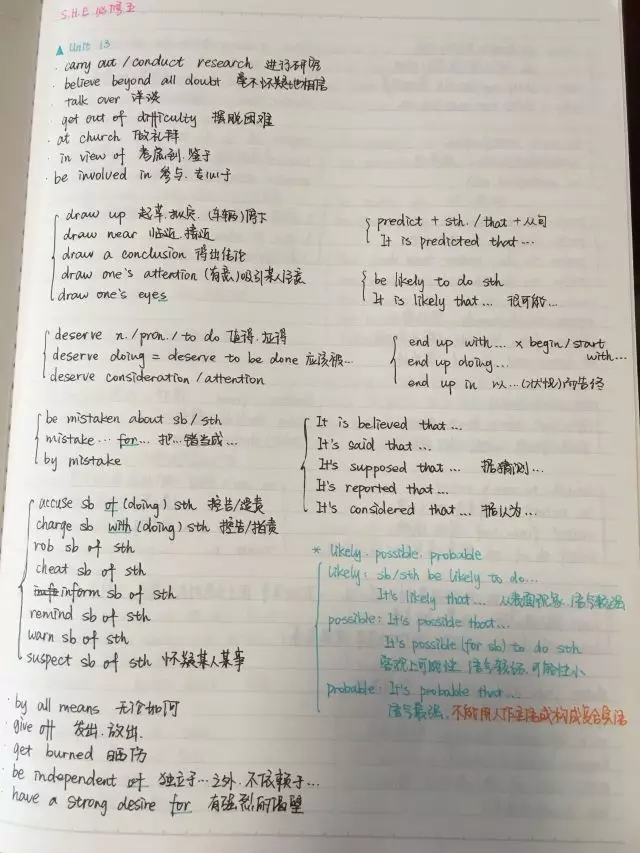 S.H.E 必修五
▲ Unit 13
· carry out / conduct research 进行研究
· believe beyond all doubt 毫不怀疑地相信
· talk over 洋谈
· get out of difficulty 摆脱困难
· at church 做礼拜
· in view of 考虑到.鉴于
· be involved in 参与.专心于
draw up 起草.拟定.(车辆)停下
draw near 临近.接近
draw a conclusion 得出结论
draw one's attention (有意)吸引某人注意
draw one's eyes
predict + sth. / that + 从句
It is predicted that ...
be likely to do sth
It is likely that ... 很可能...
deserve n. / pron. / to do 值得.应得
deserve doing = deserve to be done 应该被...
deserve consideration / attention
end up with... × begin / start with...
end up doing...
end up in 以...(状况)而告终
be mistaken about sb / sth
mistake ... for ... 把...错当成...
by mistake
It is believed that ...
It's said that ...
It's supposed that ... 据猜测...
It's reported that ...
It's considered that ... 据认为...
accuse sb of (doing) sth 控告/谴责
charge sb with (doing) sth 控告/指责
rob sb of sth
cheat sb of sth
inform sb of sth
remind sb of sth
warn sb of sth
suspect sb of sth 怀疑某人某事
* likely. possible. probable
likely: sb/sth be likely to do...
It's likely that ... 从表面现象.语气较强
possible: It's possible that...
It's possible (for sb) to do sth
客观上可能性.语气较弱.可能性小
probable: It's probable that...
语气最强.不能用人作主语或构成复合宾语
· by all means 无论如何
· give off 发出.放出.
· get burned 晒伤
· be independent of 独立于...之外.不依赖于...
· have a strong desire for 有强烈的渴望